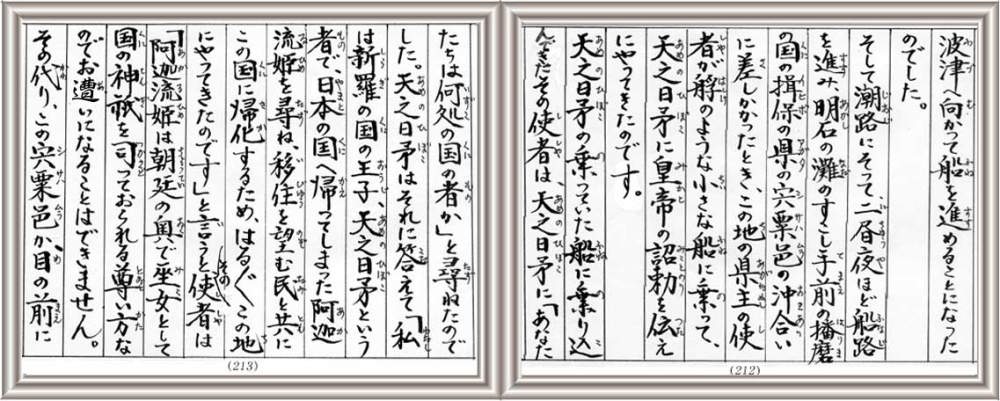 波津へ向かって船を進めることになった
のでした。
そして潮路にそって、二昼夜ほど船路
を進み、明石の灘のすこし手前の播磨
の国の揖保の県の宍粟邑の沖合い
に差しかかったとき、この地の県主の使
者が艀のような小さな船に乗って、
天之日矛に皇帝の詔勅を伝え
にやってきたのです。
天之日矛の乗っていた船に乗り込
んできたその使者は、天之日矛に「あなた
(212)
たちは何処の国の者か」と尋ねたので
した。天之日矛はそれに答えて「私
は新羅の国の王子、天之日矛という
者で、日本の国へ帰ってしまった阿迦
流姫を尋ね、移住を望む民と共に
この国に帰化するため、はるばるこの地
にやってきたのです」と言うと使者は
「阿迦流姫は朝廷の奥で巫女として
国の神祇を司っておられる尊い方な
のでお遭いになることはできません。
その代り、この宍粟邑か、目の前に
(213)